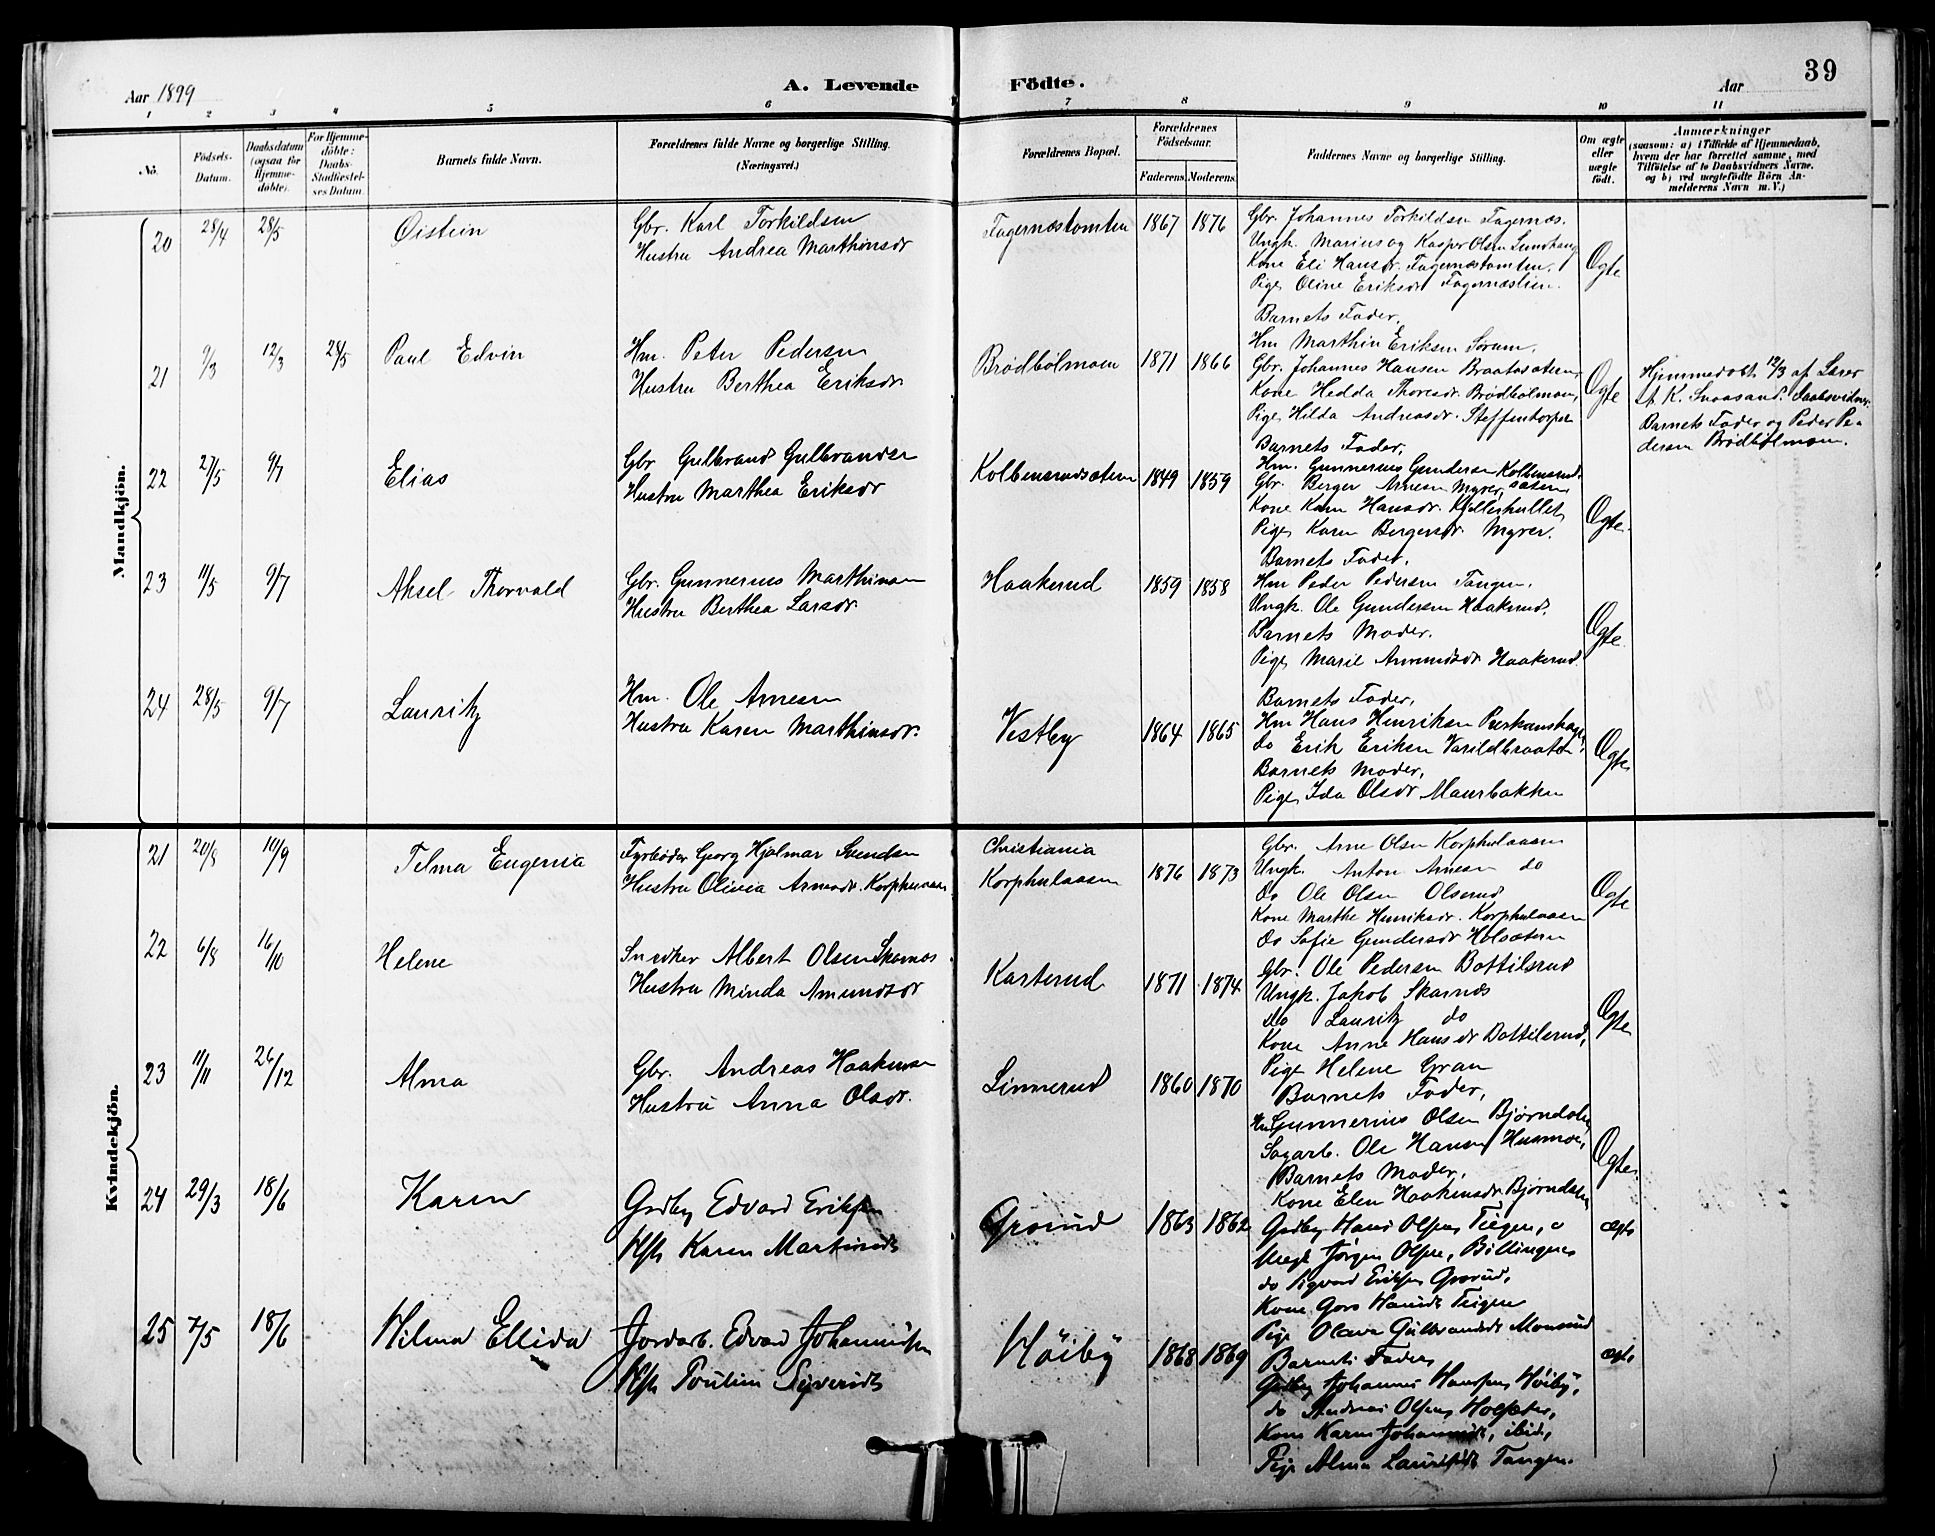 39
Aar 1899
A. Levende Födte.
Aar
1 2 3 4 5 6 7 8 9 10 11
No.
Födsels-Datum.
Daabsdatum (ogsaa for Hjemmedöbte).
For Hjemmedöbte: Daabs-Stadfæstelses Datum.
Barnets fulde Navn.
Forældrenes fulde Navne og borgerlige Stilling. (Næringsvei.)
Forældrenes Bopæl.
Forældrenes Födselsaar.
Faderens. Moderens.
Faddernes Navne og borgerlige Stilling.
Om ægte eller uægte födt.
Anmærkninger
(saasom: a) i Tilfælde af Hjemmedaab, hvem der har forrettet samme, med Tilföielse af to Daabsvidners Navne. og b) ved uægtefödte Börn Anmelderens Navn m. V.)
Mandkjön.
20 28/4 28/5 Øistein
Gbr. Karl Torkildsen
Hustru Andrea Marthinsdr
Fagernæstomten 1867 1876
Gbr. Johannes Torkildsen Fagernæs.
Ungk. Marius og Kasper Olsen Lundhaug
Kone Eli Hansdr. Fagernæstomten.
Pige Oline Eriksdr Fagernæslien.
Ægte
21 9/3 12/3 28/5 Paul Edvin
Hm. Peter Pedersen
Hustru Berthea Eriksdr
Brødbølmoen 1871 1866
Barnets Fader,
Hm Marthin Eriksen Sorum.
Gbr. Johannes Hansen Braatasætern,
Kone Hedda Thoresdr. Brødbølmoen,
Pige Hilda Andreasdr. Steffentorpet
Ægte
Hjemmedøbt 12/3 af Lærer
K. Snaasand. Daabsvidner:
Barnets Fader og Peder Pe-
dersen Brødbølmoen.
22 27/5 9/7 Elias
Gbr Gulbrand Gulbrandsen
Hustru Marthea Eriksdr
Kolbensrudsætern 1849 1859
Barnets Fader,
Hm. Gunnerius Gundersen Kolbensrud-
Gbr. Berger Arnesen Myrer, sætern
Kone Karen Hansdr. Kjølleshullet
Pige Karen Bergersdr Myrer.
Ægte.
23 11/5 9/7 Aksel Thorvald
Gbr. Gunnerius Marthinsen
Hustru Berthea Larsdr
Haakerud 1859 1858
Barnets Fader,
Hm Peder Pedersen Tangen,
Ungk. Ole Gundersen Haakerud,
Barnets Moder.
Pige Marie Amundsdr Haakerud.
Ægte.
24 28/5 9/7 Lauritz
Hm. Ole Arnesen
Hustru Karen Marthinsdr.
Vestby 1864 1865
Barnets Fader,
Hm Hans Henriksen
do Erik Eriksen Varildbraaten
Barnets Moder,
Pige, Ida Olsdr Maurbakken
Ægte
Kvindekjön.
21 20/8 10/9 Telma Eugenia
Fyrbøder Georg Hjalmar Svendsen
Hustru Olivia Arnesdr. Korphulaasen
Christiania
Korphulaasen 1876 1873
Gbr. Arne Olsen Korphulaasen
Ungk. Anton Arnesen do
Do Ole Olsen Olserud
Kone Marthe Henriksdr. Korphulaasen
Do Sofie Gundersdr Holsætern
Ægte
22 6/8 16/10 Helene
Snedker Albert Olsen Skarnæs
Hustru Minda Amundsdr
Karterud 1871 1874
Gbr. Ole Pedersen Bottilsrud
Ungk. Jakob Skarnæs
Do Lauritz do
Kone Anne Hansdr Bottilsrud,
Pige Helene Gran
Ægte
23 11/11 26/12 Alma
Gbr. Andreas Haakensen
Hustru Anna Olsdr.
Linnerud 1860 1870
Barnets Fader,
Hm Gunnerius Olsen Bjørndalen
Sagarb. Ole Hansen Husmoe,
Barnets Moder,
Kone Elen Haakensdr. Bjørndalen
Ægte
24 29/3 18/6 Karen
Grdbr Edvard Eriksen
Hst Karen Martinsdt
Grosrud 1863 1862
Grdbr Hans Olsen, Teigen,
Ungk Jörgen Olsen, Billingnes
do Sigvard Eriksen Grosrud,
Kone Goro Hansdt Teigen
Pige Olava Gulbrandsdt Monsrud
ægte
25 7/5 18/6 Wilma Ellida
Jordarb. Edvard Johannessen
Hst Pouline Syversdt
Höiby 1868 1869
Barnets Fader
Grdbr Johannes Hansen Höiby,
do Andreas Olsen Holsæter,
Kone Karen Johannesdt, ibid,
Pige Alma Lauritsdt Tangen.
ægte